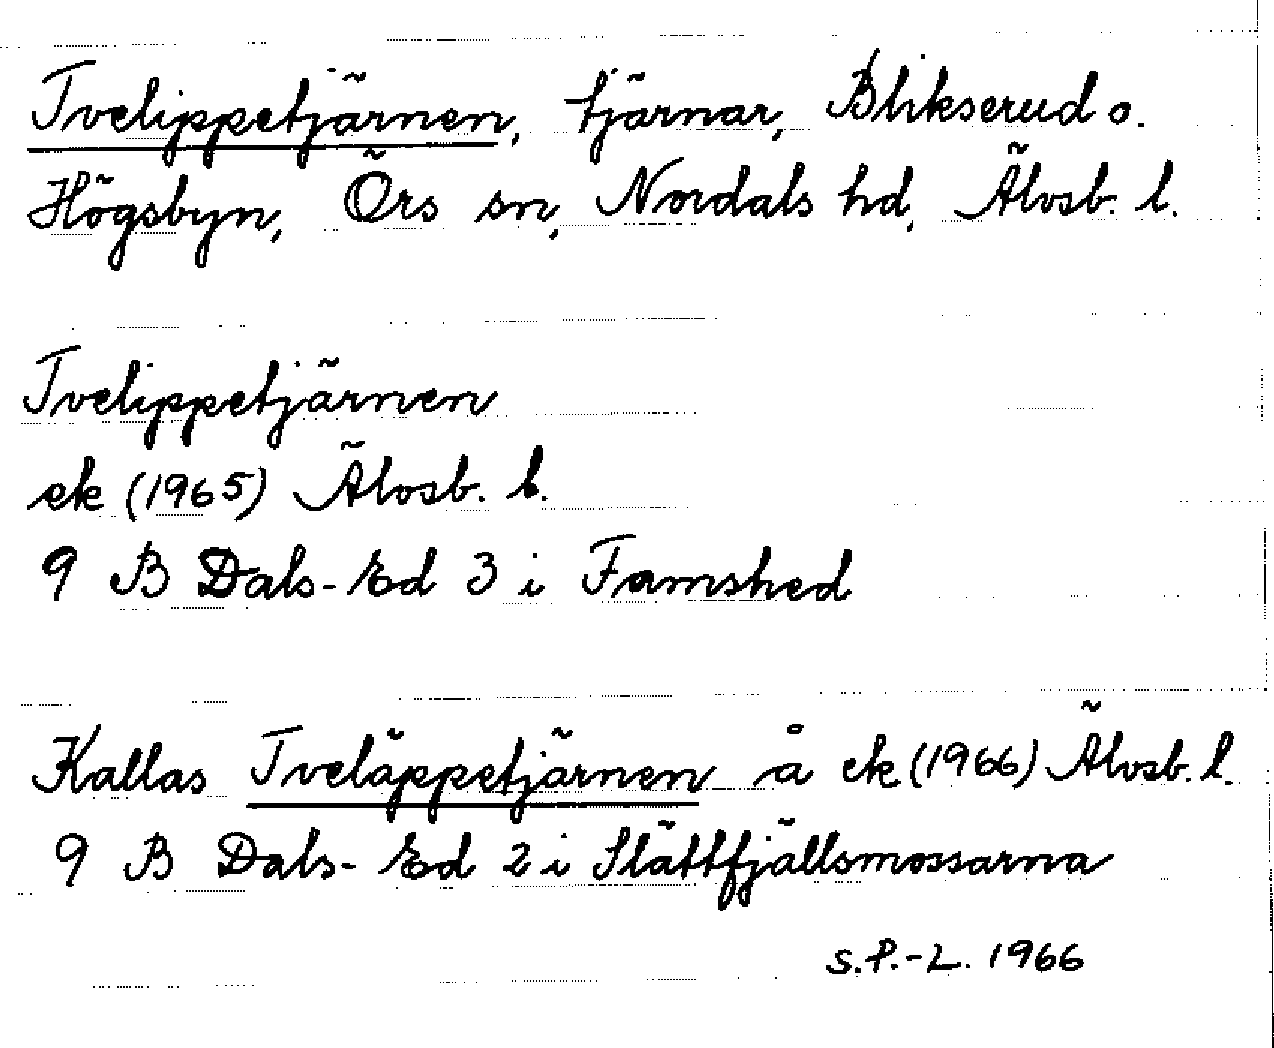 Tvelippetjärnen, tjärnar, Blikserud o.
Högsbyn, Örs sn, Nordals hd, Älvsb. l.
Tvelippetjärnen
ek (1965) Älvsb. l.
9 B Dals-Ed 3 i Famshed
Kallas Tveläppetjärnen å ek (1966) Älvsb. l.
9 B Dals-Ed 2 i Slättfjällsmossarna
S.P.-L. 1966